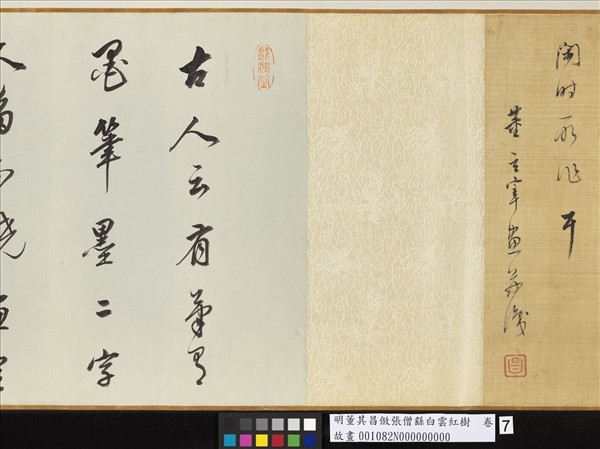 閒時所作耳
董玄宰畫並識
古人云有筆有
墨筆墨二字
人多不曉畫豈
明董其昌倣張僧繇白雲紅樹 卷
故畫 001082N000000000
7